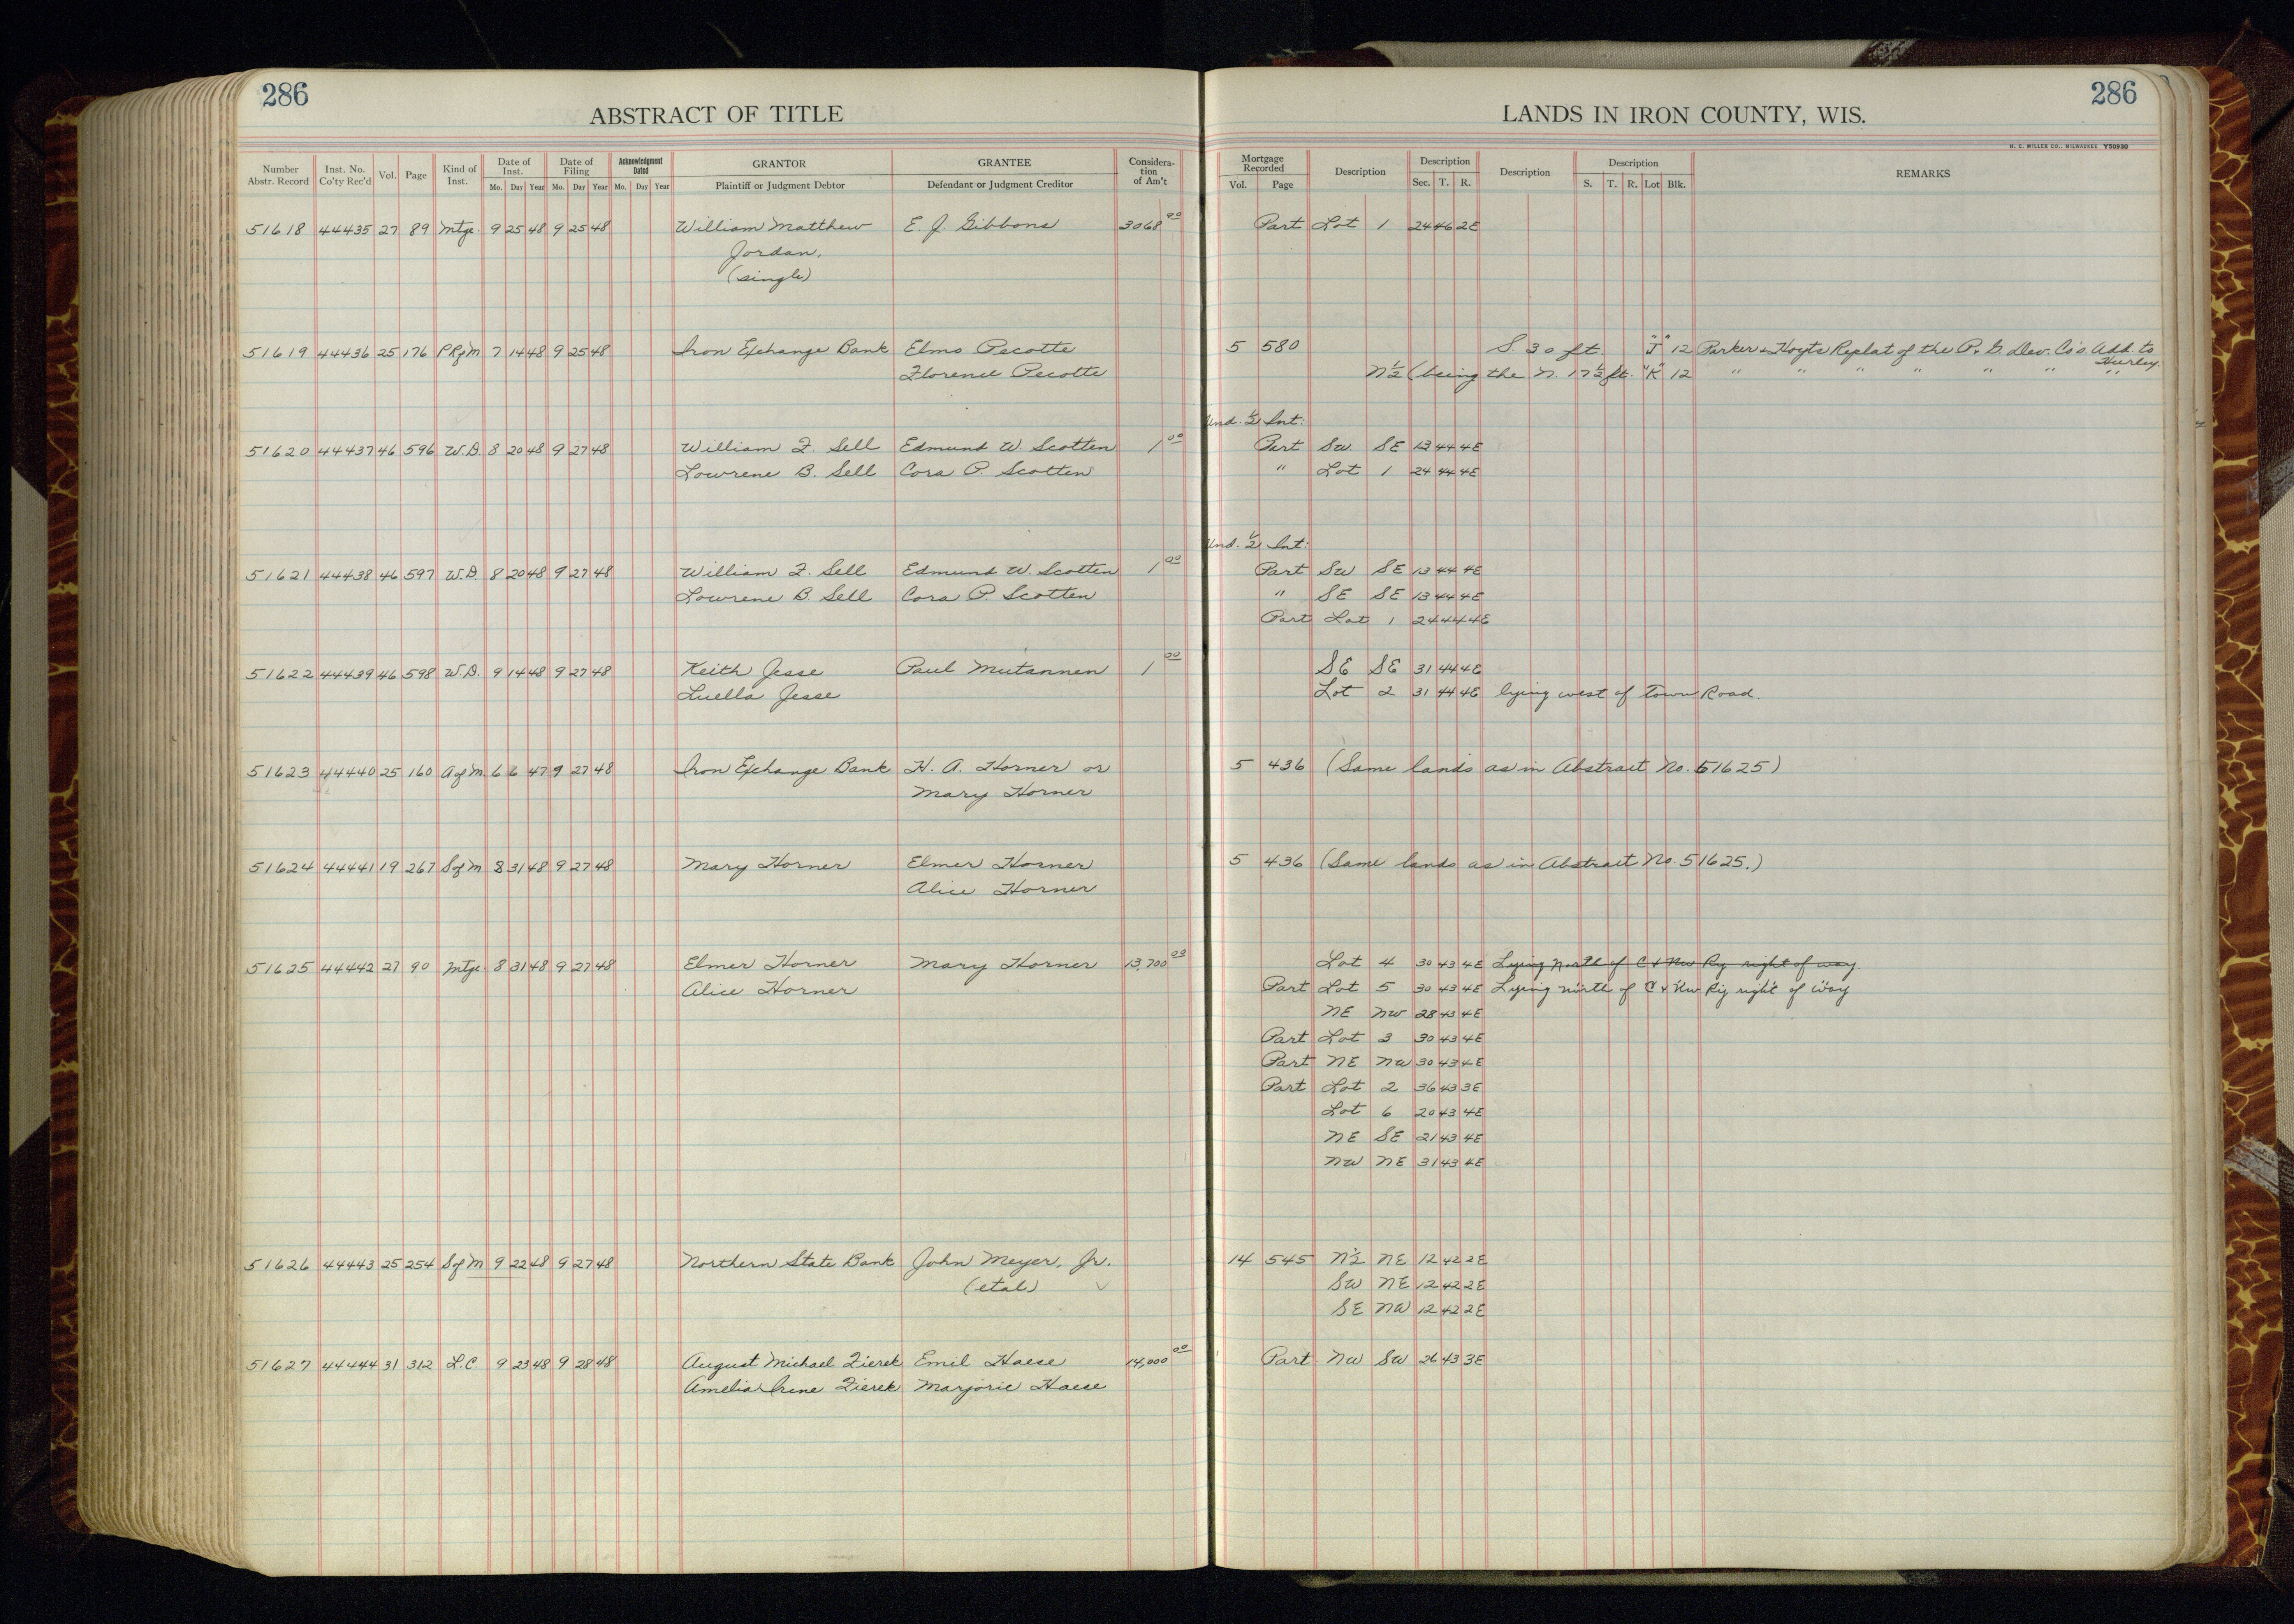 286
ABSTRACT OF TITLE
Number Abstr. Record Inst. No. Co'ty Rec'd Vol. Page Kind of Inst. Date of Inst. Mo. Day Year Date of Filing Mo. Day Year Acknowledgment Dated Mo. Day Year GRANTOR Plaintiff or Judgment Debtor GRANTEE Defendant or Judgment Creditor Considera-tion of Am't
51618 44435 27 89 Mtge. 9 25 48 9 25 48 William Matthew E. J. Gibbons 3068 00
Jordan,
(single)
51619 44436 25 176 P R of M 7 14 48 9 25 48 Iron Exchange Bank Elmo Pecotte
Florence Pecotte
51620 44437 46 596 W.D. 8 20 48 9 27 48 William F. Sell Edmund W. Scotten 1 00
Lowrene B. Sell Cora P. Scotten
51621 44438 46 597 W.D. 8 20 48 9 27 48 William F. Sell Edmund W. Scotten 1 00
Lowrene B. Sell Cora P. Scotten
51622 44439 46 598 W.D. 9 14 48 9 27 48 Keith Jesse Paul Mutannen 1 00
Luella Jesse
51623 44440 25 160 A of M. 6 6 47 9 27 48 Iron Exchange Bank H. A. Horner or
Mary Horner
51624 44441 19 267 S of M 8 31 48 9 27 48 Mary Horner Elmer Horner
Alice Horner
51625 44442 27 90 Mtge 8 31 48 9 27 48 Elmer Horner Mary Horner 13,700 00
Alice Horner
51626 44443 25 254 S of M 9 22 48 9 27 48 Northern State Bank John Meyer, Jr.
(etal)
51627 44444 31 312 L.C. 9 23 48 9 28 48 August Michael Zierek Emil Haese 14,000 00
Amelia Irene Zierek Marjorie Haese
286
LANDS IN IRON COUNTY, WIS.
H. C. MILLER CO., MILWAUKEE Y50930
Mortgage Recorded Vol. Page Description Description Sec. T. R. Description Description S. T. R. Lot Blk. REMARKS
Part Lot 1 24 46 2E
5 580 S. 30 ft "J" 12 Parker & Hoyts Replat of the P. & G. Dev. Co's. Add. to
Hurley.
N½ (being the N. 17½ ft. "K" 12 " " " " " " "
Und. ½ Int:
Part SW SE 13 44 4E
" Lot 1 24 44 4E
Und. ½ Int:
Part SW SE 13 44 4E
" SE SE 13 44 4E
Part Lot 1 24 44 4E
SE SE 31 44 4E
Lot 2 31 44 4E lying west of Town Road.
5 436 (Same lands as in Abstract No. 51625)
5 436 (Same lands as in Abstract No. 51625.)
Lot 4 30 43 4E Lying North of C & NW Ry right of way.
Part Lot 5 30 43 4E Lying north of C & NW Ry right of way
NE NW 28 43 4E
Part Lot 3 30 43 4E
Part NE NW 30 43 4E
Part Lot 2 36 43 3E
Lot 6 20 43 4E
NE SE 21 43 4E
NW NE 31 43 4E
14 545 N½ NE 12 42 2E
SW NE 12 42 2E
SE NW 12 42 2E
Part NW SW 26 43 3E